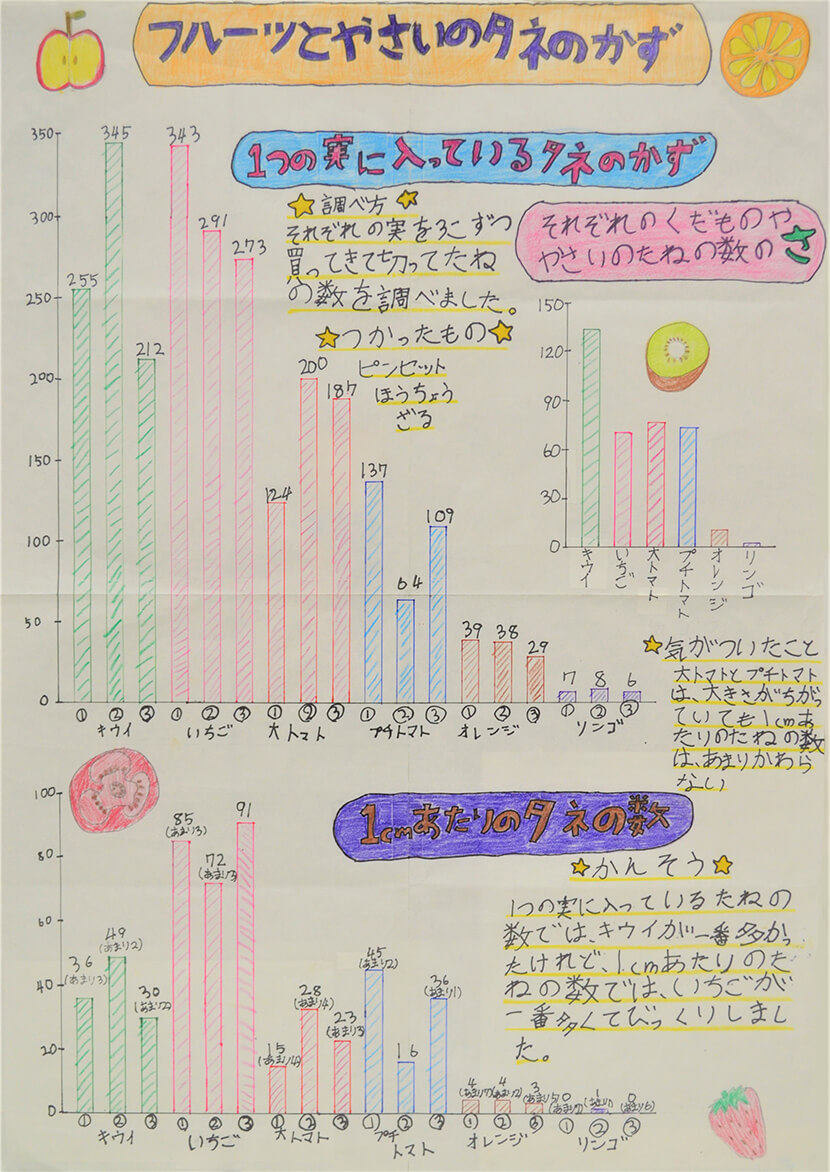 フルーツとやさいのタネのかず
1つの実に入っているタネのかず
350
300
250
200
150
100
50
0
255
345
212
343
291
273
124
200
187
137
64
109
39
38
29
7
8
6
① ② ③ ① ② ③ ① ② ③ ① ② ③ ① ② ③ ① ② ③
キウイ いちご 大トマト プチトマト オレンジ リンゴ
調べ方
それぞれの実を3こずつ
買ってきて切ってたね
の数を調べました。
つかったもの
ピンセット
ほうちょう
ざる
それぞれのくだものや
やさいのたねの数の
さ
150
120
90
60
30
0
キウイ
いちご
大トマト
プチトマト
オレンジ
リンゴ
気がついたこと
大トマトとプチトマト
は、大きさがちがっ
ていても1cmあ
たりのたねの数
は、あまりかわら
ない
1cmあたりのタネの数
100
80
60
40
20
0
36
(あまり3)
49
(あまり2)
30
(あまり2)
85
(あまり3)
72
(あまり3)
91
15
(あまり4)
28
(あまり4)
23
(あまり3)
45
(あまり2)
16
36
(あまり1)
4
4
3
0
1
0
(あまり6)
① ② ③ ① ② ③ ① ② ③ ① ② ③ ① ② ③ ① ② ③
キウイ いちご 大トマト プチ オレンジ リンゴ
トマト
かんそう
1つの実に入っているたねの
数では、キウイが一番多かっ
たけれど、1cmあたりのた
ねの数では、いちごが
一番多くてびっくりしまし
た。